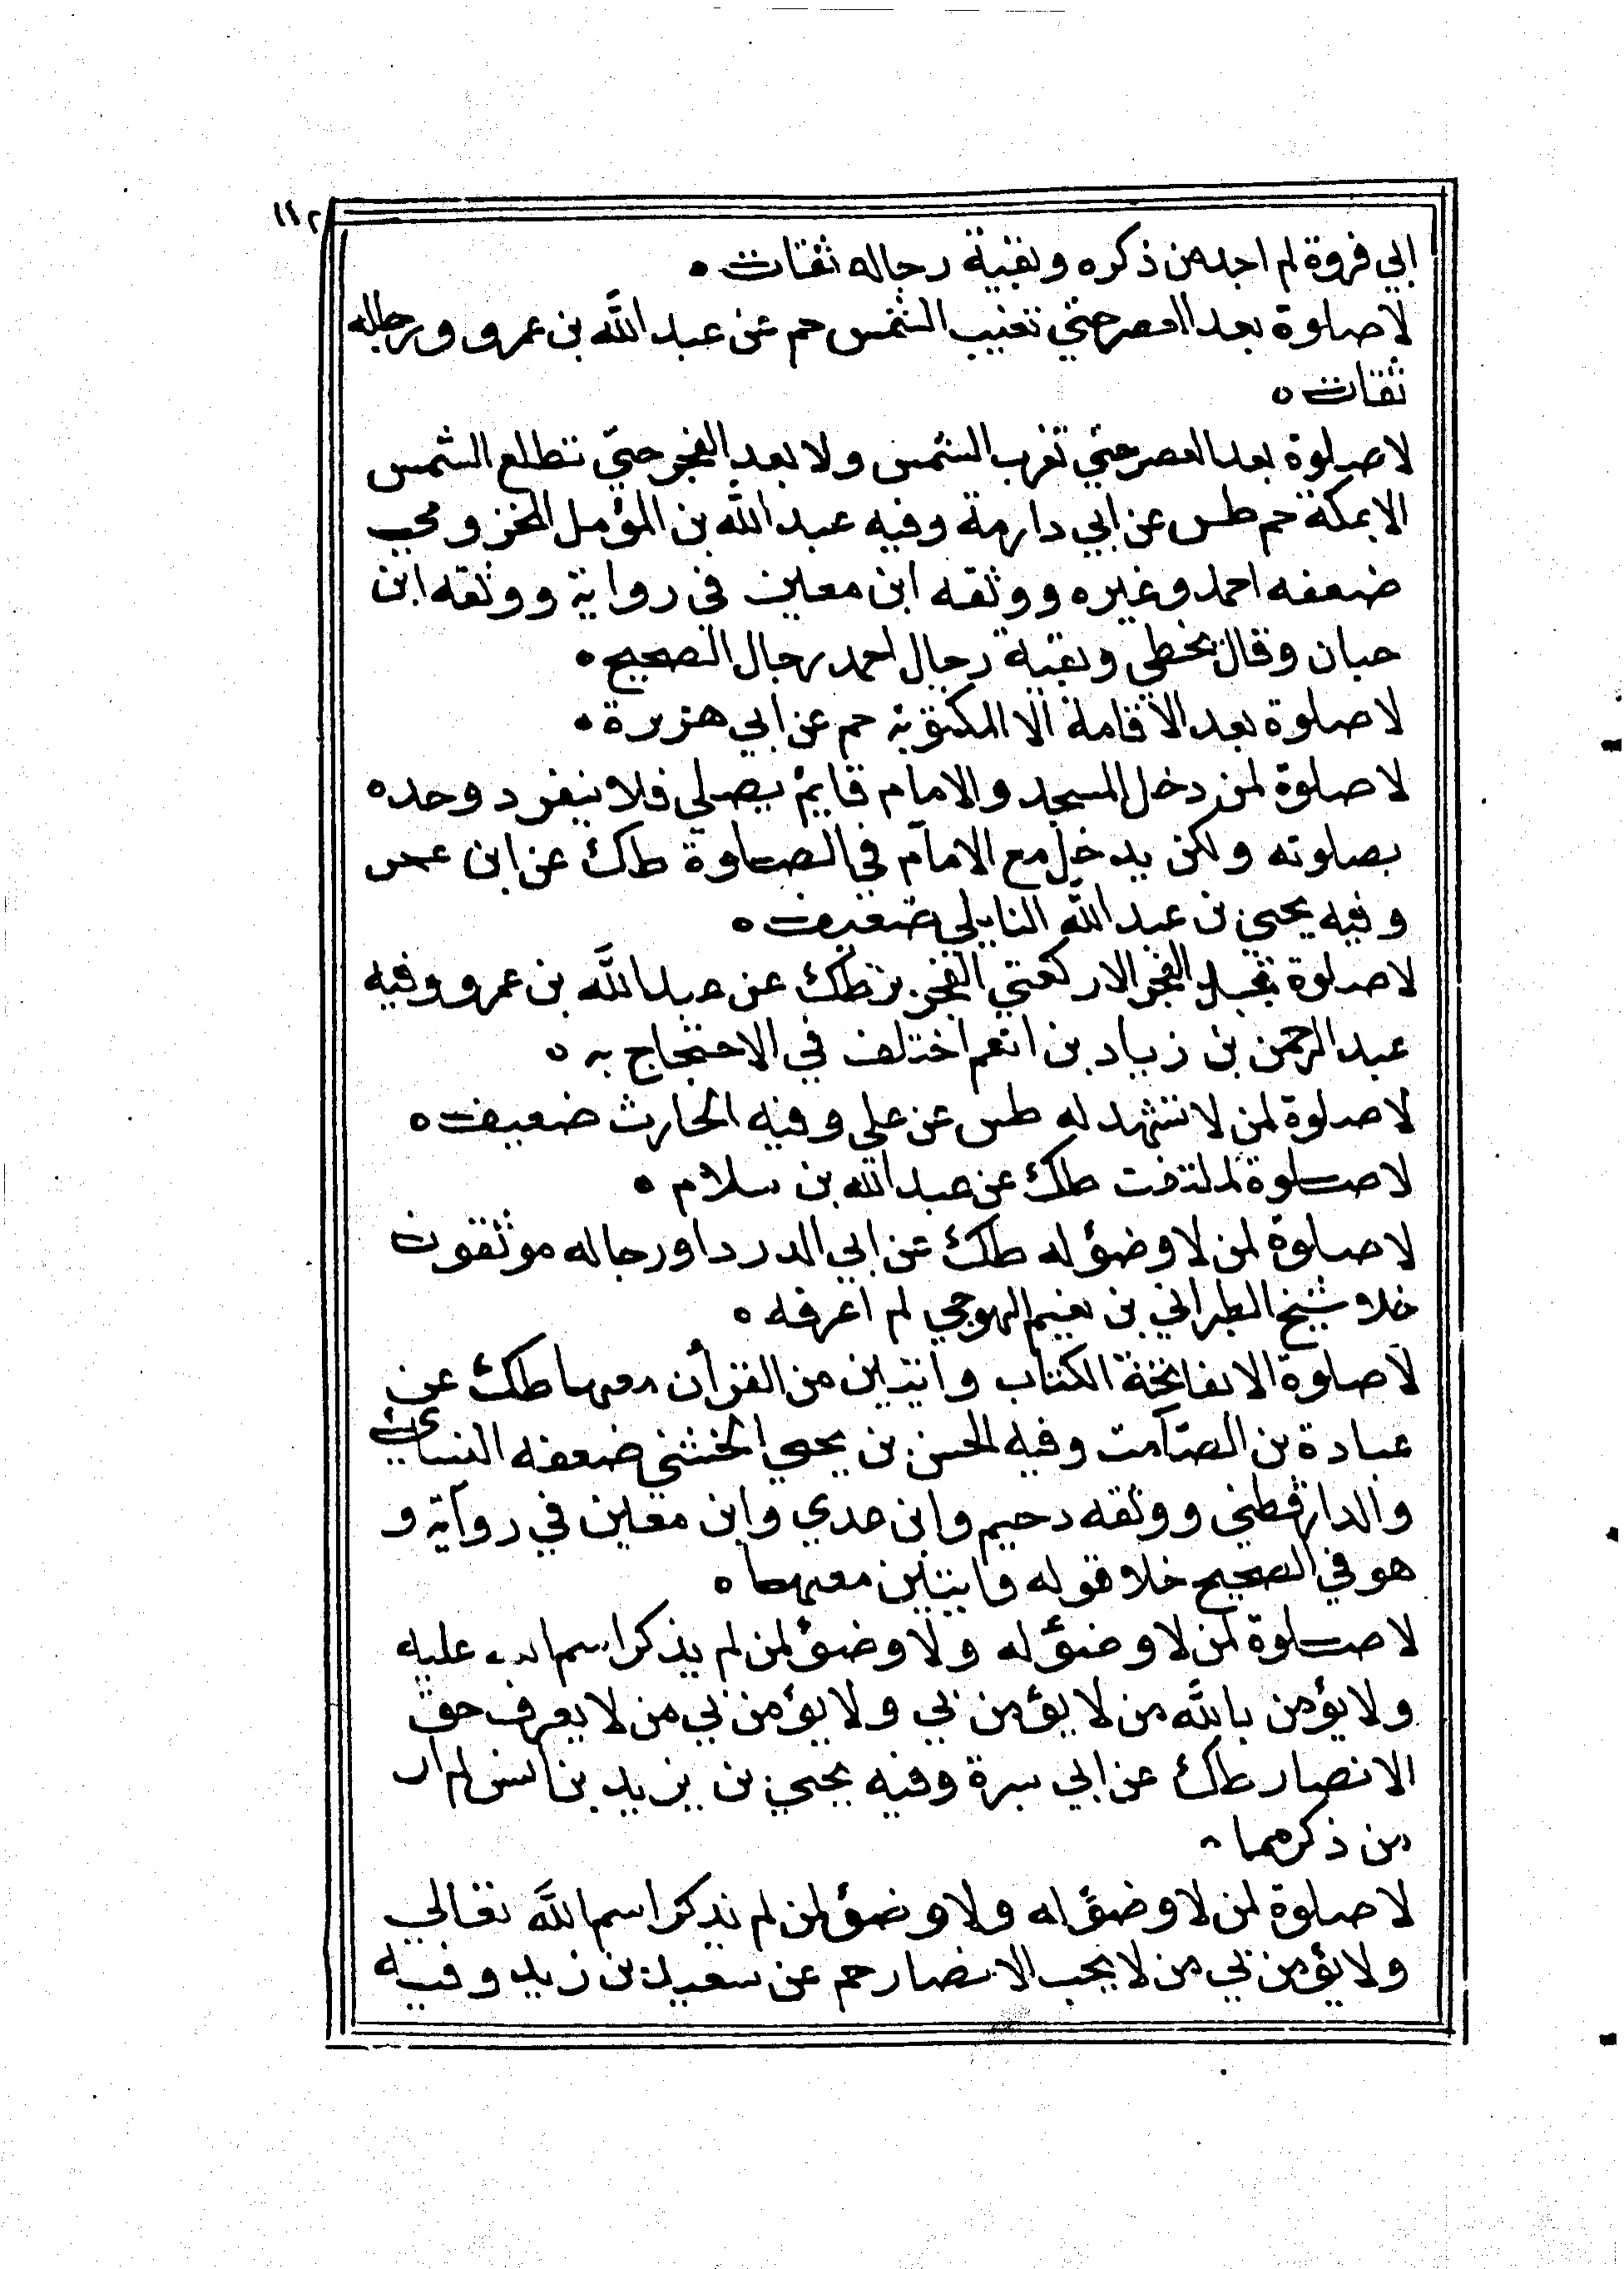 ١٤٢
ابي فروة لم اجد من ذكره وبقية رجاله ثقات ه
لا صلوة بعد العصر حتي تغيب الشمس حم عن عبد الله بن عمرو ورجاله
ثقات ه
لا صلوة بعد العصر حتي تغرب الشمس ولا بعد الفجر حتي تطلع الشمس
الا بمكة حم طس عن ابي وفيه عبد الله بن المؤمل المخزومي
ضعفه احمد وغيره ووثقه ابن معين في رواية ووثقه ابن
حبان وقال يخطي وبقية رجال احمد رجال الصحيح ه
لا صلوة بعد الاقامة الا المكتوبة حم عن ابي هريرة ه
لا صلوة لمن دخل المسجد والامام قايم يصلي فلا ينفرد وحده
بصلوته ولكن يدخل مع الامام في الصلوة طك عن ابن عمر
وفيه يحيي بن عبد الله البابلي ضعيف ه
لا صلوة الفجر الا ركعتي الفجر بز طك عن عبد الله بن عمرو وفيه
عبد الرحمن بن زياد بن انعم اختلف في الاحتجاج به ه
لا صلوة لمن لا تشهد له طس عن علي وفيه الحارث ضعيف ه
لا صلوة لملتفت طك عن عبد الله بن سلام ه
لا صلوة لمن لا وضؤ له طك عن ابي الدردا ورجاله موثقون
خلا شيخ الطبراني بن لم اعرفه ه
لا صلوة الا بفاتحة الكتاب وايتين من القرأن معها طك عن
عبادة بن الصامت وفيه الحسن بن يحيي الخشني ضعفه النسائي
والدارقطني ووثقه دحيم وابن عدي وابن معين في رواية و
هو في الصحيح خلا قوله وايتين معها ه
لا صلوة لمن لا وضؤ له ولا وضؤ لمن لم يذكر اسم الله عليه
ولا يؤمن بالله من لا يؤمن بي ولا يؤمن بي من لا يعرف حق
الانصار طك عن ابي سبرة وفيه يحيي بن يزيد بن انس لم ار
من ذكرهما ه
لا صلوة لمن لا وضؤ له ولا وضؤ لمن لم يذكر اسم الله تعالي
ولا يؤمن بي من لا يحب الانصار حم عن سعيد بن زيد وفيه